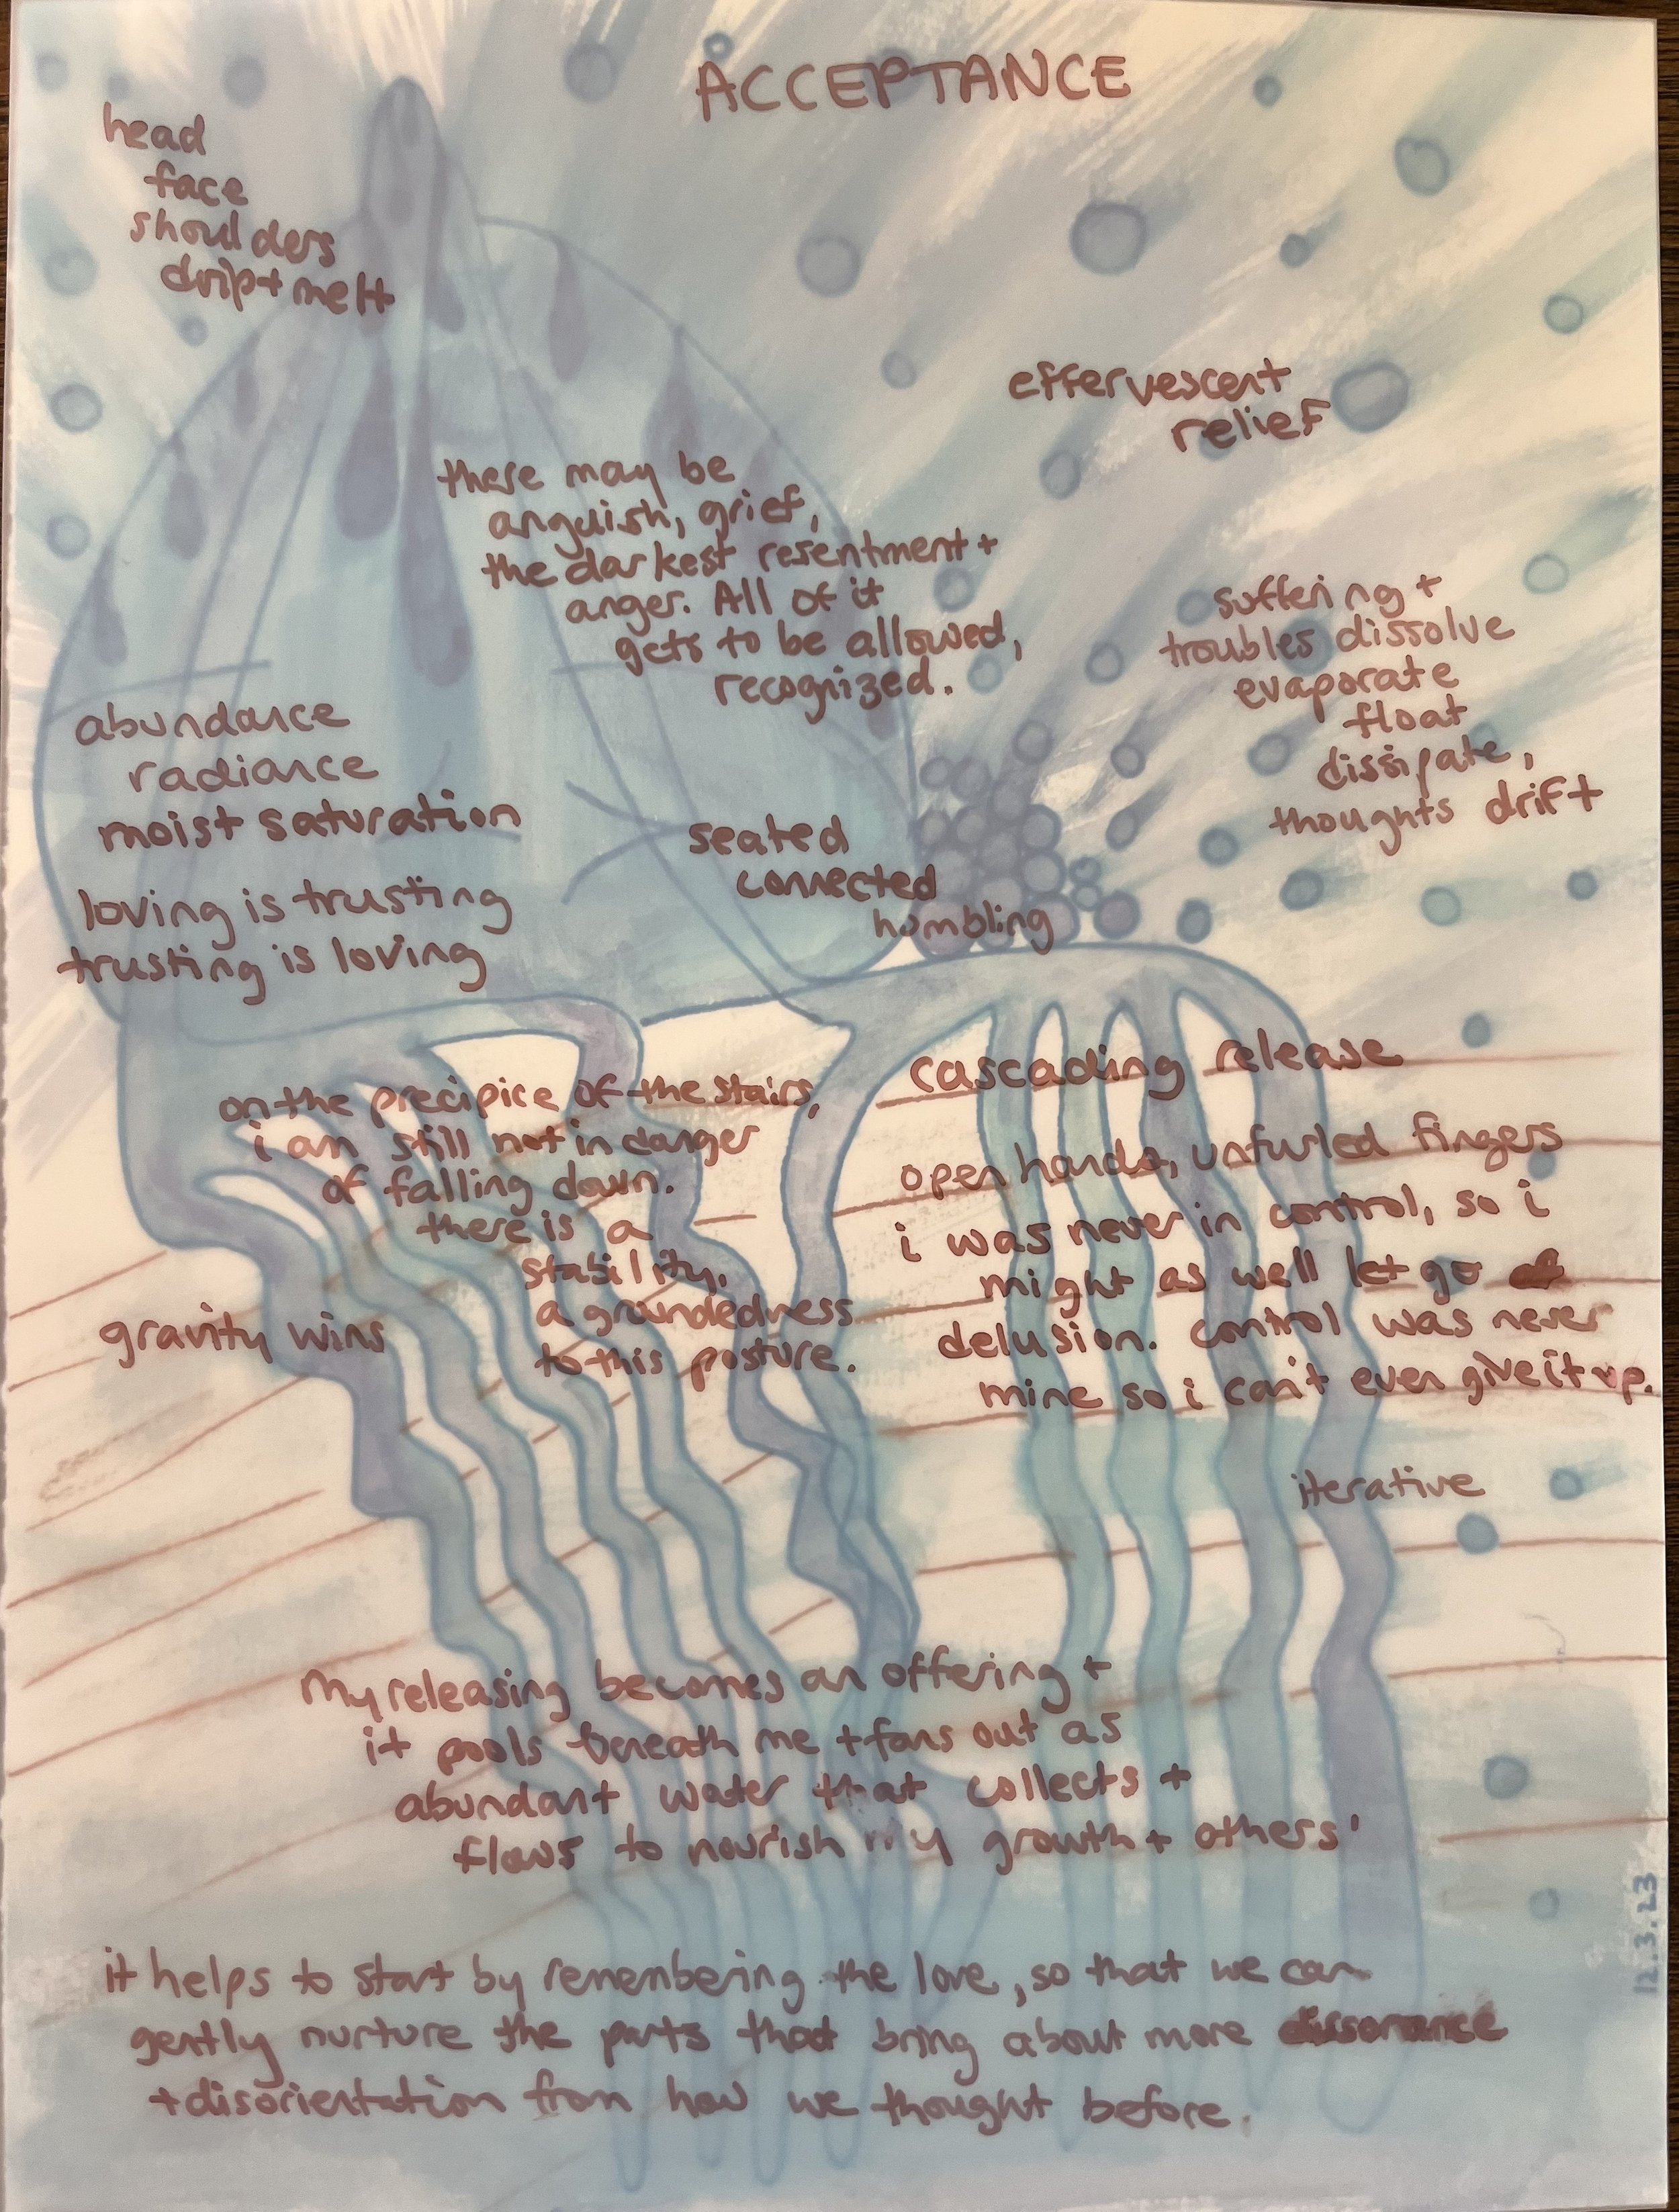 ACCEPTANCE
head
face
shoulders
drip + melt
effervescent
relief
there may be
anguish, grief,
the darkest resentment +
anger. All of it
gets to be allowed,
recognized.
suffering +
troubles dissolve
evaporate
float
dissipate,
thoughts drift
abundance
radiance
moist saturation
loving is trusting
trusting is loving
seated
connected
humbling
on the precipice of the stairs,
i am still not in danger
of falling down.
there is a
stability,
a groundedness
to this posture.
gravity wins
cascading release
open hands, unfurled fingers
i was never in control, so i
might as well let go
delusion. control was never
mine so i can't even give it up.
iterative
My releasing becomes an offering +
it pools beneath me + fans out as
abundant water that collects +
flows to nourish my growth + others'
it helps to start by remembering the love, so that we can
gently nurture the parts that bring about more dissonance
+ disorientation from how we thought before.
12.3.23